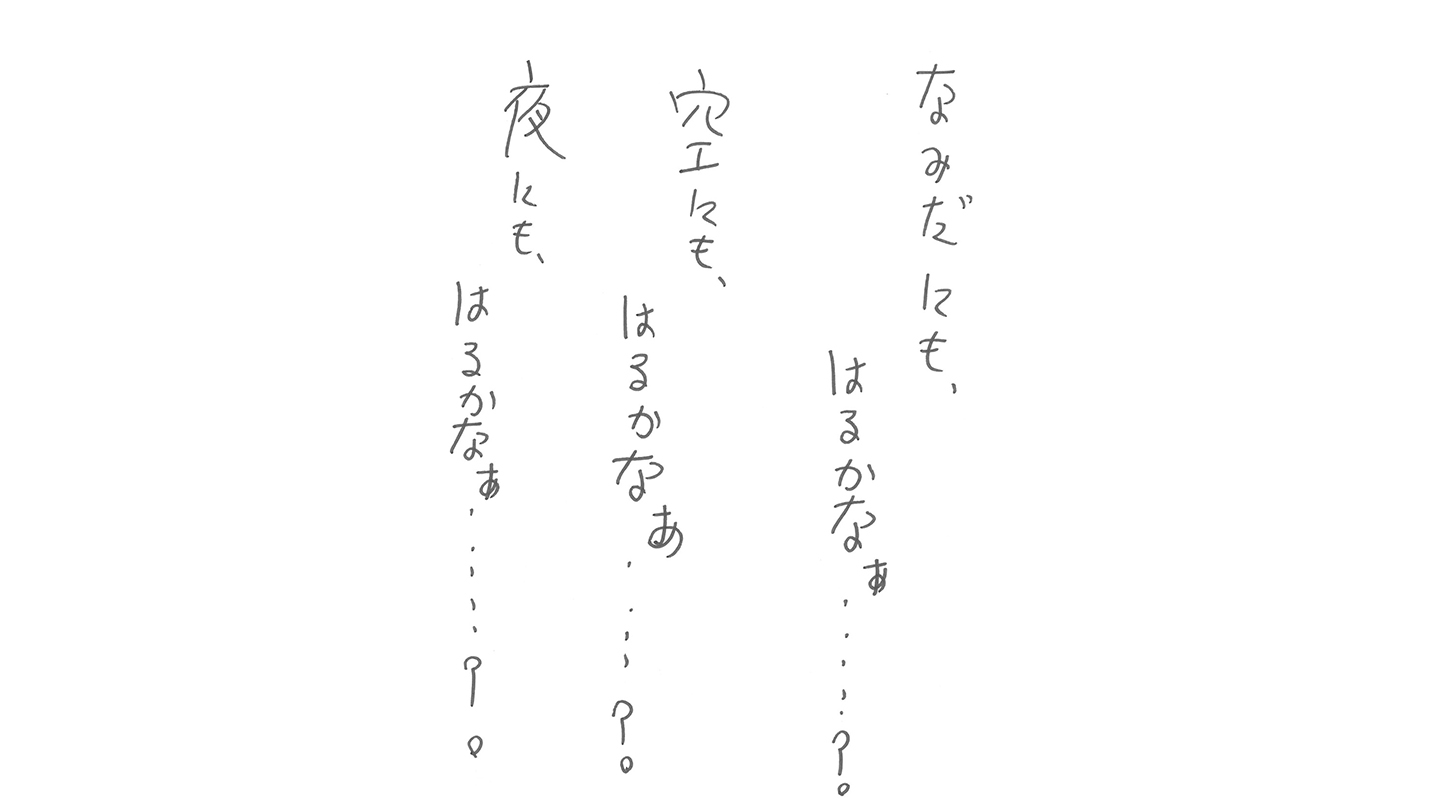 なみだにも、
はるかなぁ……?
空にも、
はるかなあ……?
夜にも、
はるかなぁ……?